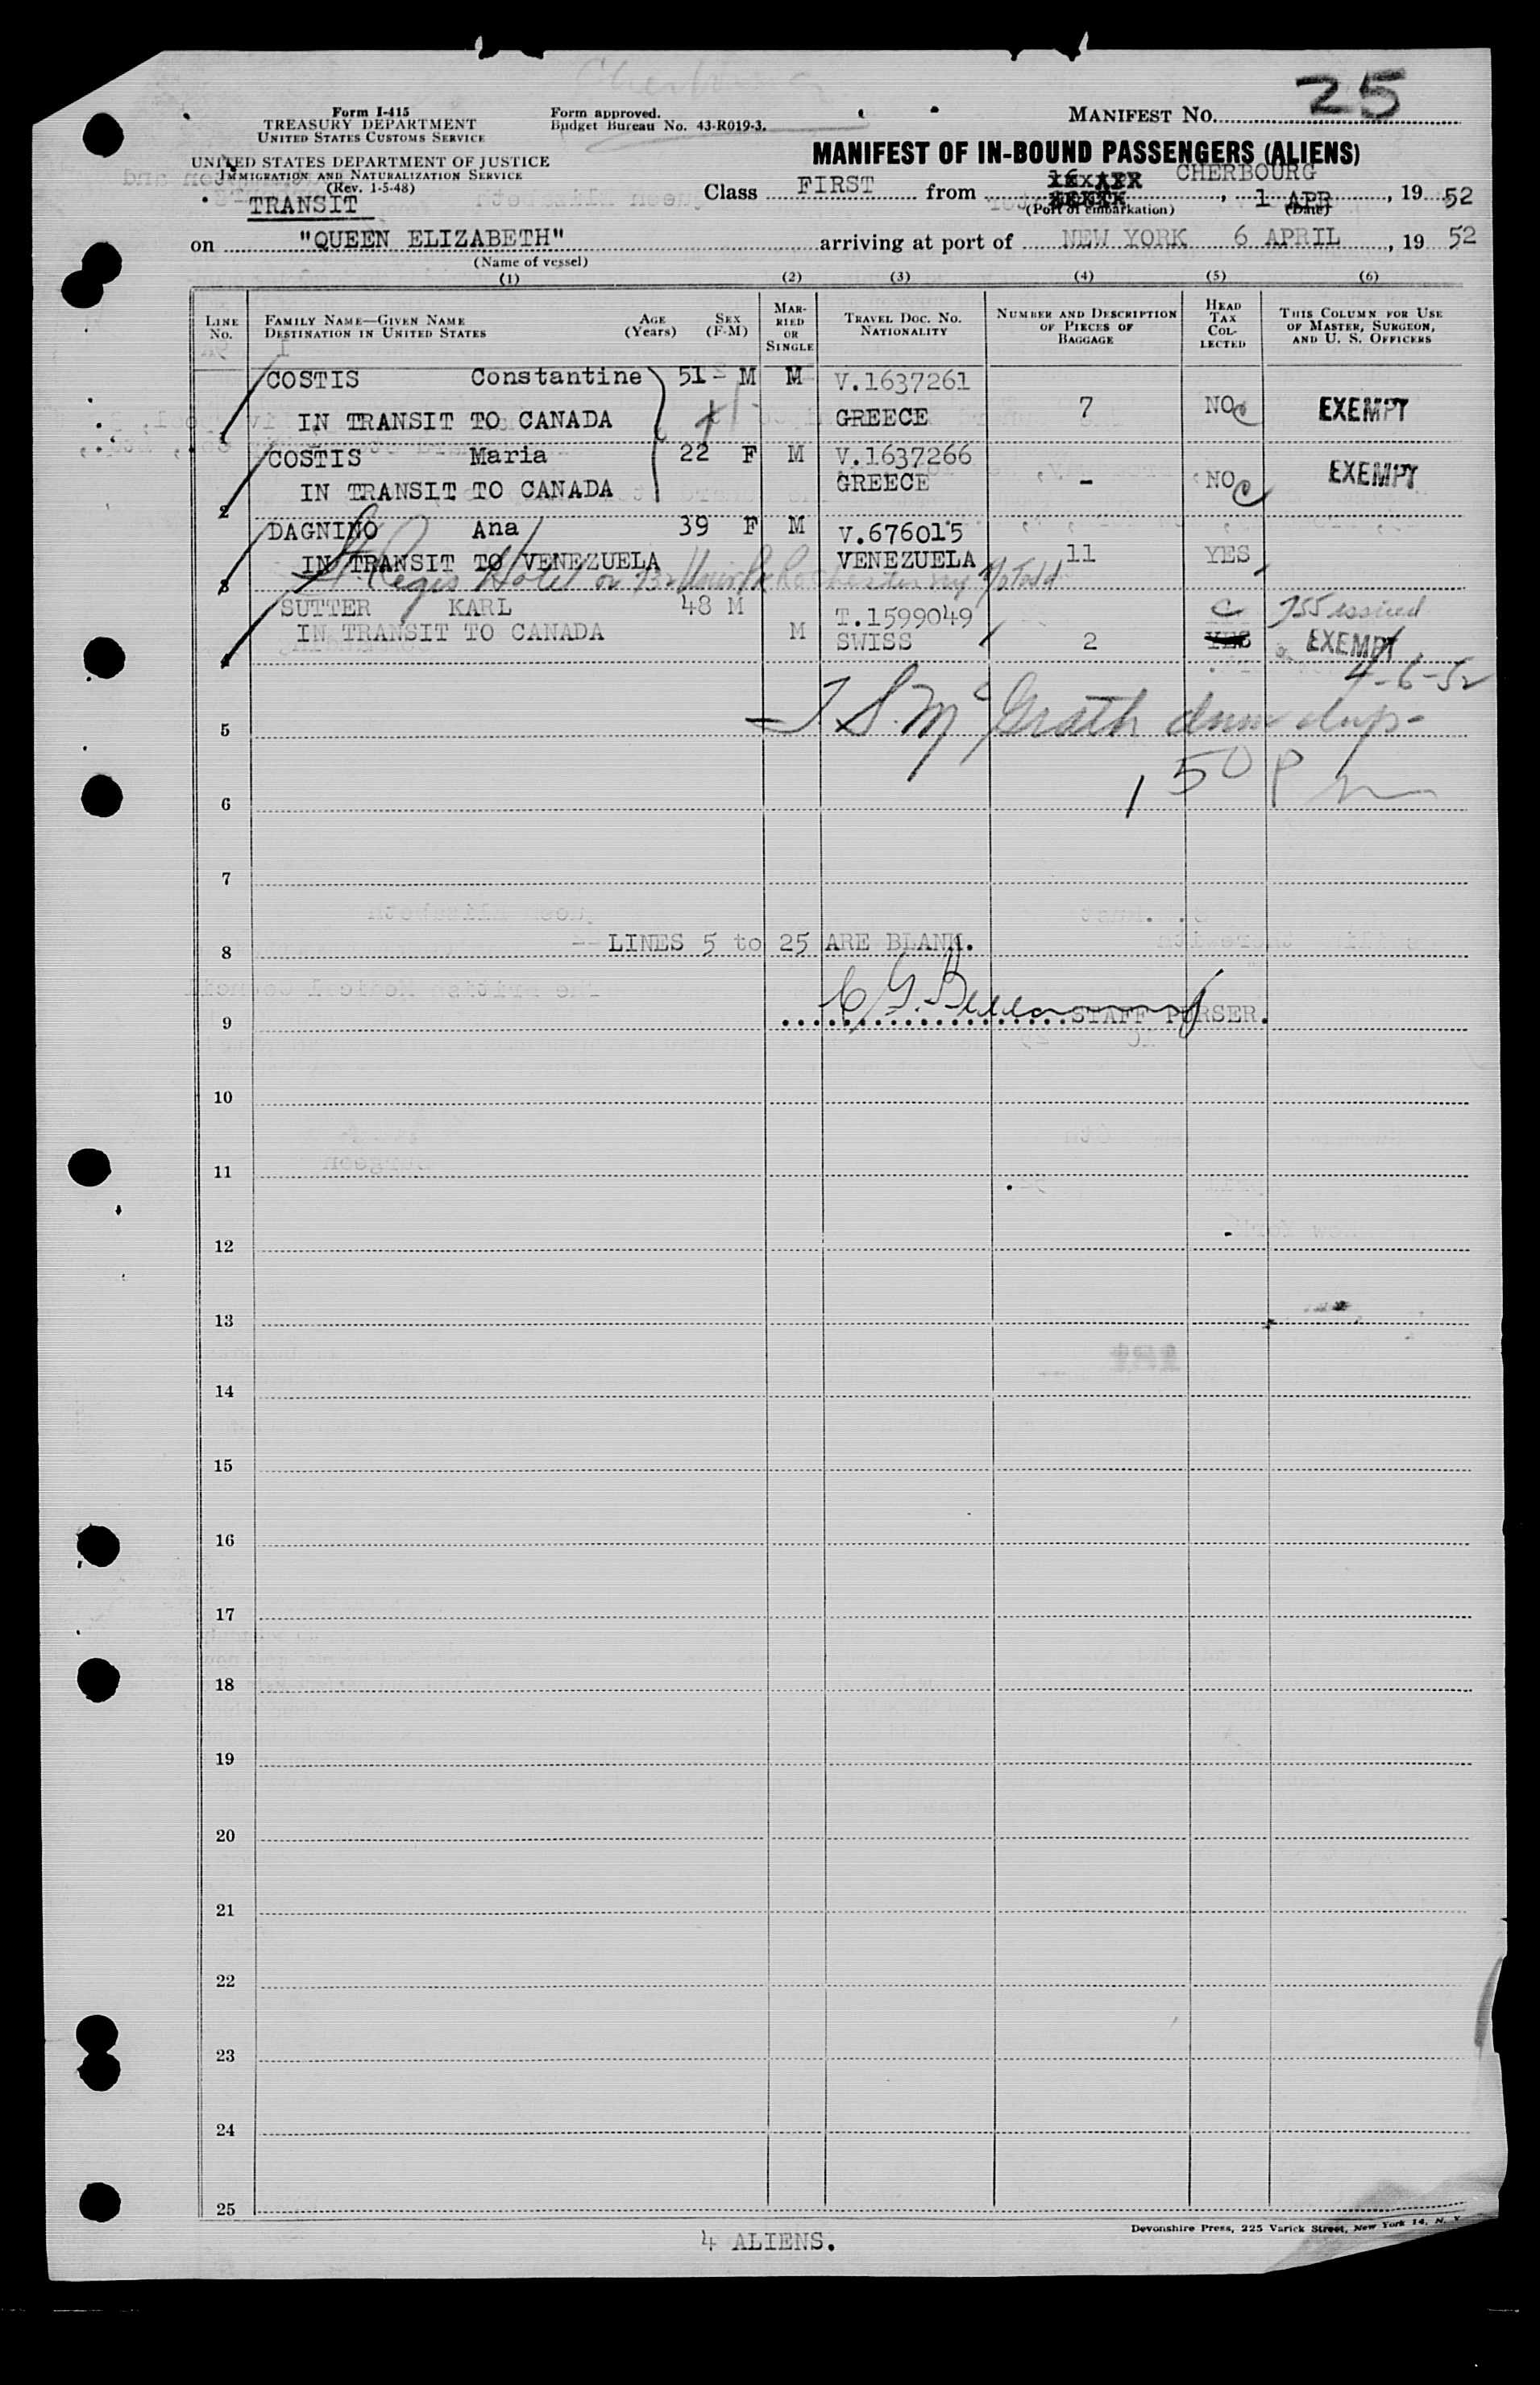 25
Form I-415
TREASURY DEPARTMENT
UNITED STATES CUSTOMS SERVICE
Form approved.
Budget Bureau No. 43-R019-3.
MANIFEST NO.
UNITED STATES DEPARTMENT OF JUSTICE
IMMIGRATION AND NATURALIZATION SERVICE
(Rev. 1-5-48)
MANIFEST OF IN-BOUND PASSENGERS (ALIENS)
TRANSIT
Class FIRST from CHERBOURG, 1 APR, 19 52
(Port of embarkation) (Date)
on "QUEEN ELIZABETH" arriving at port of NEW YORK 6 APRIL, 19 52
(Name of vessel)
(1) (2) (3) (4) (5) (6)
LINE No.
FAMILY NAME—GIVEN NAME
DESTINATION IN UNITED STATES
AGE (Years)
SEX (F-M)
MARRIED OR SINGLE
TRAVEL DOC. NO. NATIONALITY
NUMBER AND DESCRIPTION OF PIECES OF BAGGAGE
HEAD TAX COLLECTED
THIS COLUMN FOR USE OF MASTER, SURGEON, AND U. S. OFFICERS
COSTIS Constantine 51 M M V.1637261
1 IN TRANSIT TO CANADA GREECE 7 NO C EXEMPT
COSTIS Maria 22 F M V.1637266
2 IN TRANSIT TO CANADA GREECE - NO C EXEMPT
DAGNINO Ana 39 F M V.676015
3 IN TRANSIT TO VENEZUELA VENEZUELA 11 YES
St. Regis Hotel or Rochester ny
SUTTER KARL 48 M T.1599049 C issued
4 IN TRANSIT TO CANADA M SWISS 2 YES EXEMPT
4-6-52
5 J S. McGrath
6 1 50 P m
7
8 --LINES 5 to 25 ARE BLANK.
9 STAFF PURSER.
10
11
12
13
14
15
16
17
18
19
20
21
22
23
24
25
4 ALIENS.
Devonshire Press, 225 Varick Street, New York 14, N. Y.